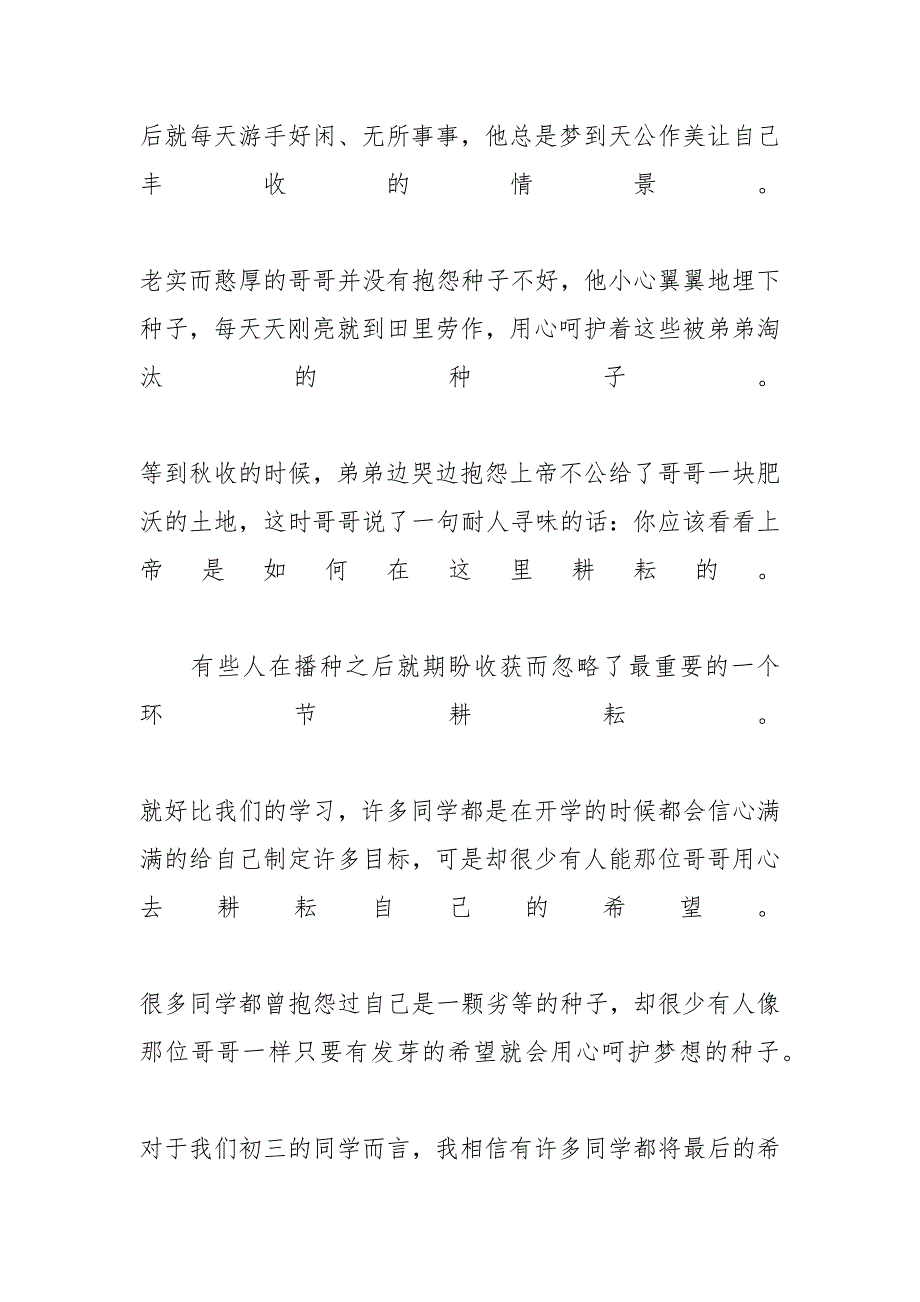 后就每天游手好闲、无所事事，他总是梦到天公作美让自己
丰收的情景。
老实而憨厚的哥哥并没有抱怨种子不好，他小心翼翼地埋下
种子，每天天刚亮就到田里劳作，用心呵护着这些被弟弟淘
汰的种子。
等到秋收的时候，弟弟边哭边抱怨上帝不公给了哥哥一块肥
沃的土地，这时哥哥说了一句耐人寻味的话：你应该看看上
帝是如何在这里耕耘的。
有些人在播种之后就期盼收获而忽略了最重要的一个
环节耕耘。
就好比我们的学习，许多同学都是在开学的时候都会信心满
满的给自己制定许多目标，可是却很少有人能那位哥哥用心
去耕耘自己的希望。
很多同学都曾抱怨过自己是一颗劣等的种子，却很少有人像
那位哥哥一样只要有发芽的希望就会用心呵护梦想的种子。
对于我们初三的同学而言，我相信有许多同学都将最后的希